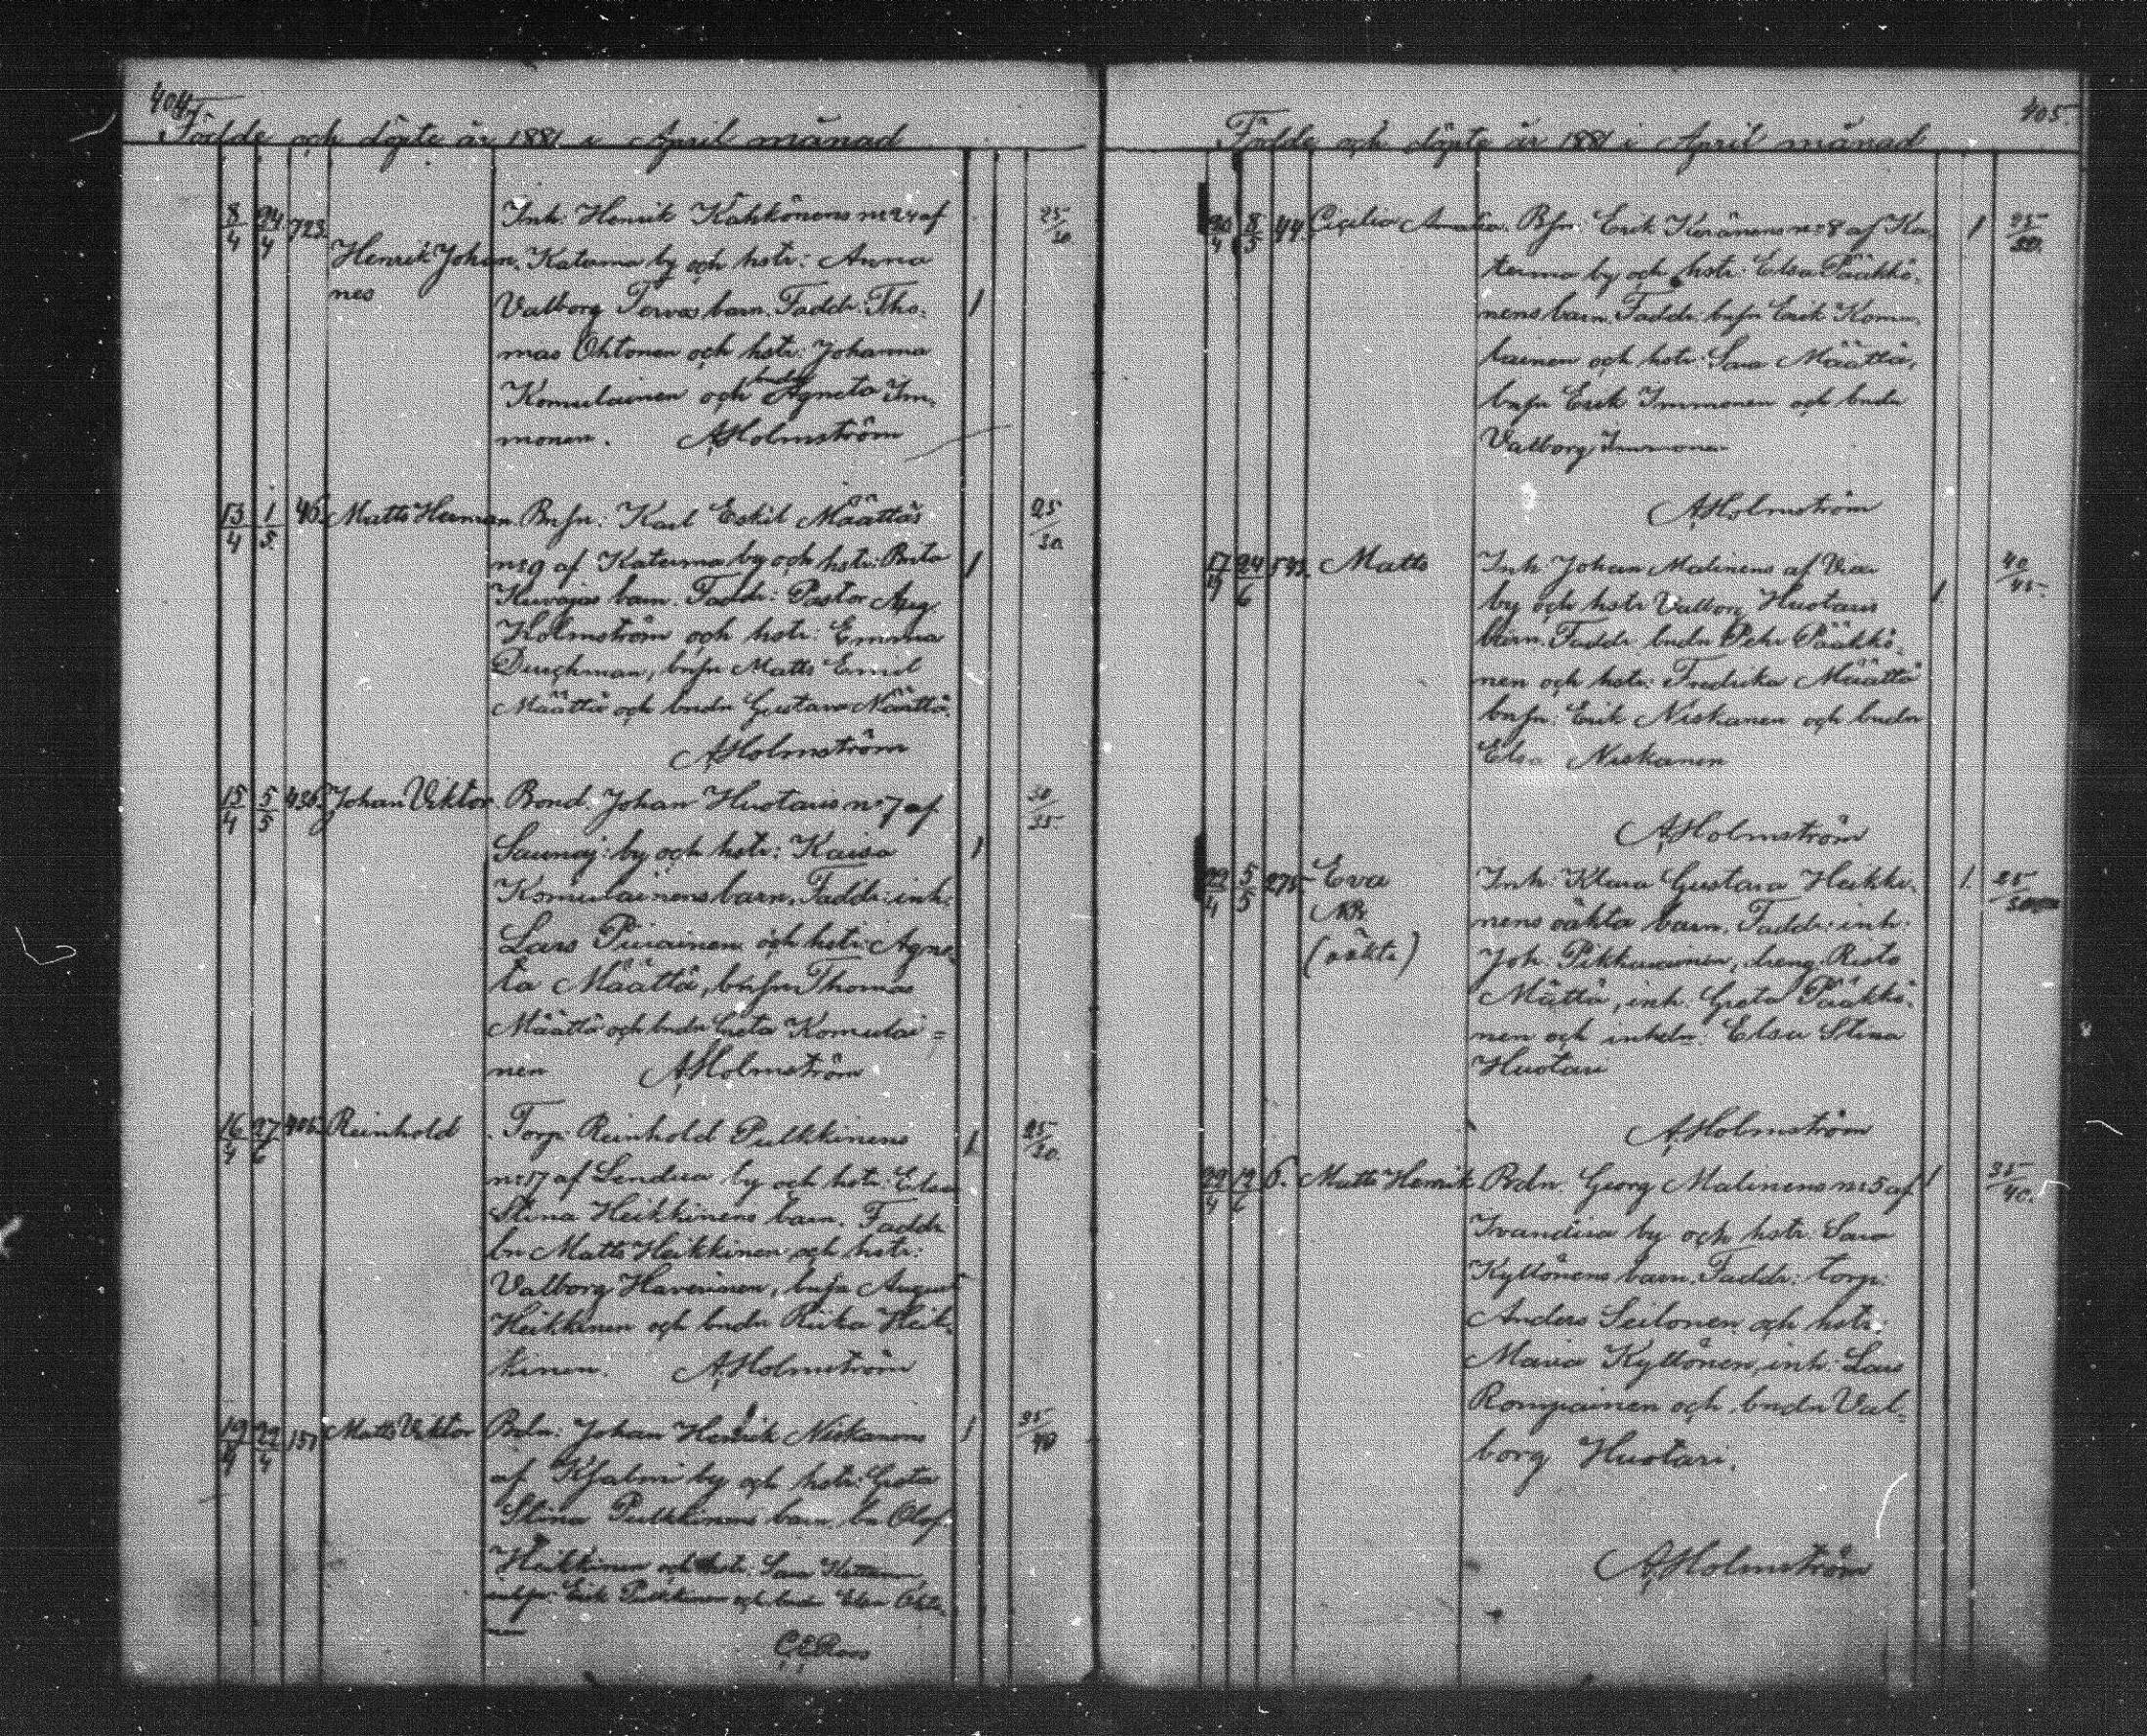 404.
Födde och döpte år 1881 i April månad
8/4 24/4 723. Inh. Henrik Kähkönens nr 24 af 25/30
Henrik Johan- Katerma by och hstr: Anna
nes Valborg Tervos barn. Faddr: Tho- 1
mas Ohtonen och hstr: Johanna
Komulainen och bndr Agneta Im-
monen. AHolmström
13/4 1/5 46. Matts Herman. Bnsn: Karl Eskil Määttäs 25/30
nr 9 af Katerma by och hstr: Brita 1
Kuvajas barn. Faddr: Pastor Aug.
Holmström och hstr: Emma
Durchman, bnsn Matts Emil
Määttä och bndr Gustava Määttä.
AHolmström
15/4 5/5 436. Johan Viktor Bond. Johan Huotaris nr 7 af 30/35
Saunaj: by och hstr: Kaisa 1
Komulainens barn. Faddr: inh:
Lars Piirainen och hstr: Agne-
ta Määttä, bnsn Thomas
Määttä och bndr Greta Komulai=
nen AHolmström
16/4 27/6 Reinhold Torp. Reinhold Pulkkinens 1 25/30
nr 17 af Lendira by och hstr: Elsa
Stina Heikkinens barn. Faddr
bn Matts Heikkinen och hstr:
Valborg Haverinen, bnsn August
Heikkinen och bndr Riika Heik-
kinen. AHolmström
19/4 22/4 151 Matts Viktor Bdn: Johan Henrik Niskanens 1 35/40
af Kjalmi by och hstr: Greta
Stina Pulkkinens barn. bn Olof
Heikkinen och hstr: Sara
Erik Pulkkinen och bndr Elsa Ohto-
nen
CERoos
405.
Födde och döpte år 1881 i April månad
20/4 8/5 44. Cecilia Amalia. Bsn. Erik Keränens nr 8 af Ka- 1 25/30.
terma by och hstr: Elsa Pääkkö-
nens barn. Faddr: bnsn Erik Komu-
lainen och hstr: Sara Määttä,
bnsn Erik Immonen och bndr
Valborg Immonen
AHolmström
17/4 24/6 Matts Inh. Johan Malinens af Viar 40/45.
by och hstr Valborg Huotaris 1
barn. Faddr bndn Pehr Pääkkö-
nen och hstr: Fredrika Määttä
bnsn: Erik Niskanen och bndr
Elsa Niskanen
AHolmström
22/4 5/5 275 Eva Inh: Klara Gustava Heikki- 1. 25/30
NB. nens oäkta barn. Faddr: inh:
(oäkta) Joh: Pikkarainen, dreng. Risto
Mättä, inh. Greta Pääkkö-
nen och inhdr: Elsa Stina
Huotari
AHolmström
29/4 12/6 6. Matts Henrik Bdn. Georg Malinens nr 5 af 1 35/40.
Ivandira by och hstr: Sara
Kyllönens barn. Faddr: torp:
Anders Seilonen och hstr:
Maria Kyllönen, inh: Lars
Rompainen och bndr Val-
borg Huotari.
AHolmström